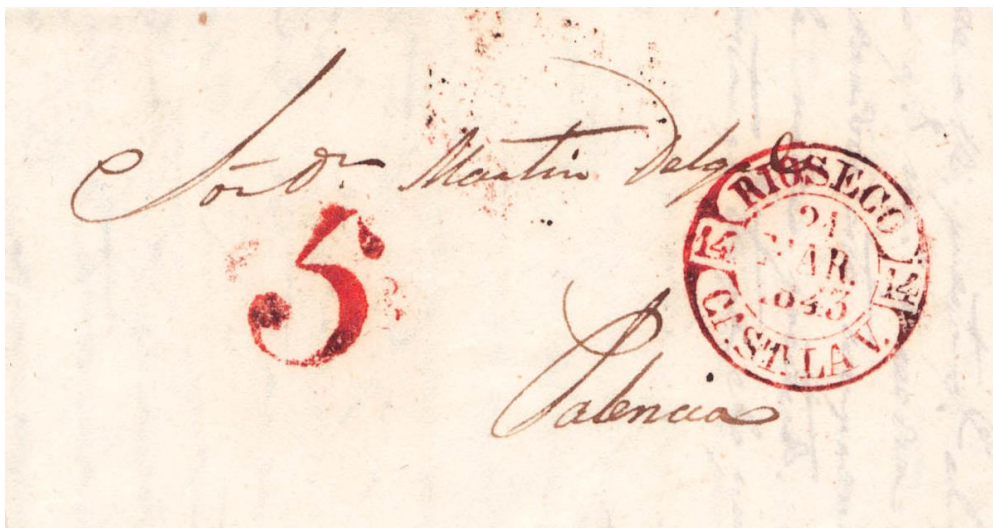 Sor Dn Martin Delgdo
5
RIOSECO
14 21 14
MAR.
1843
CAST. LA V.
Palencia